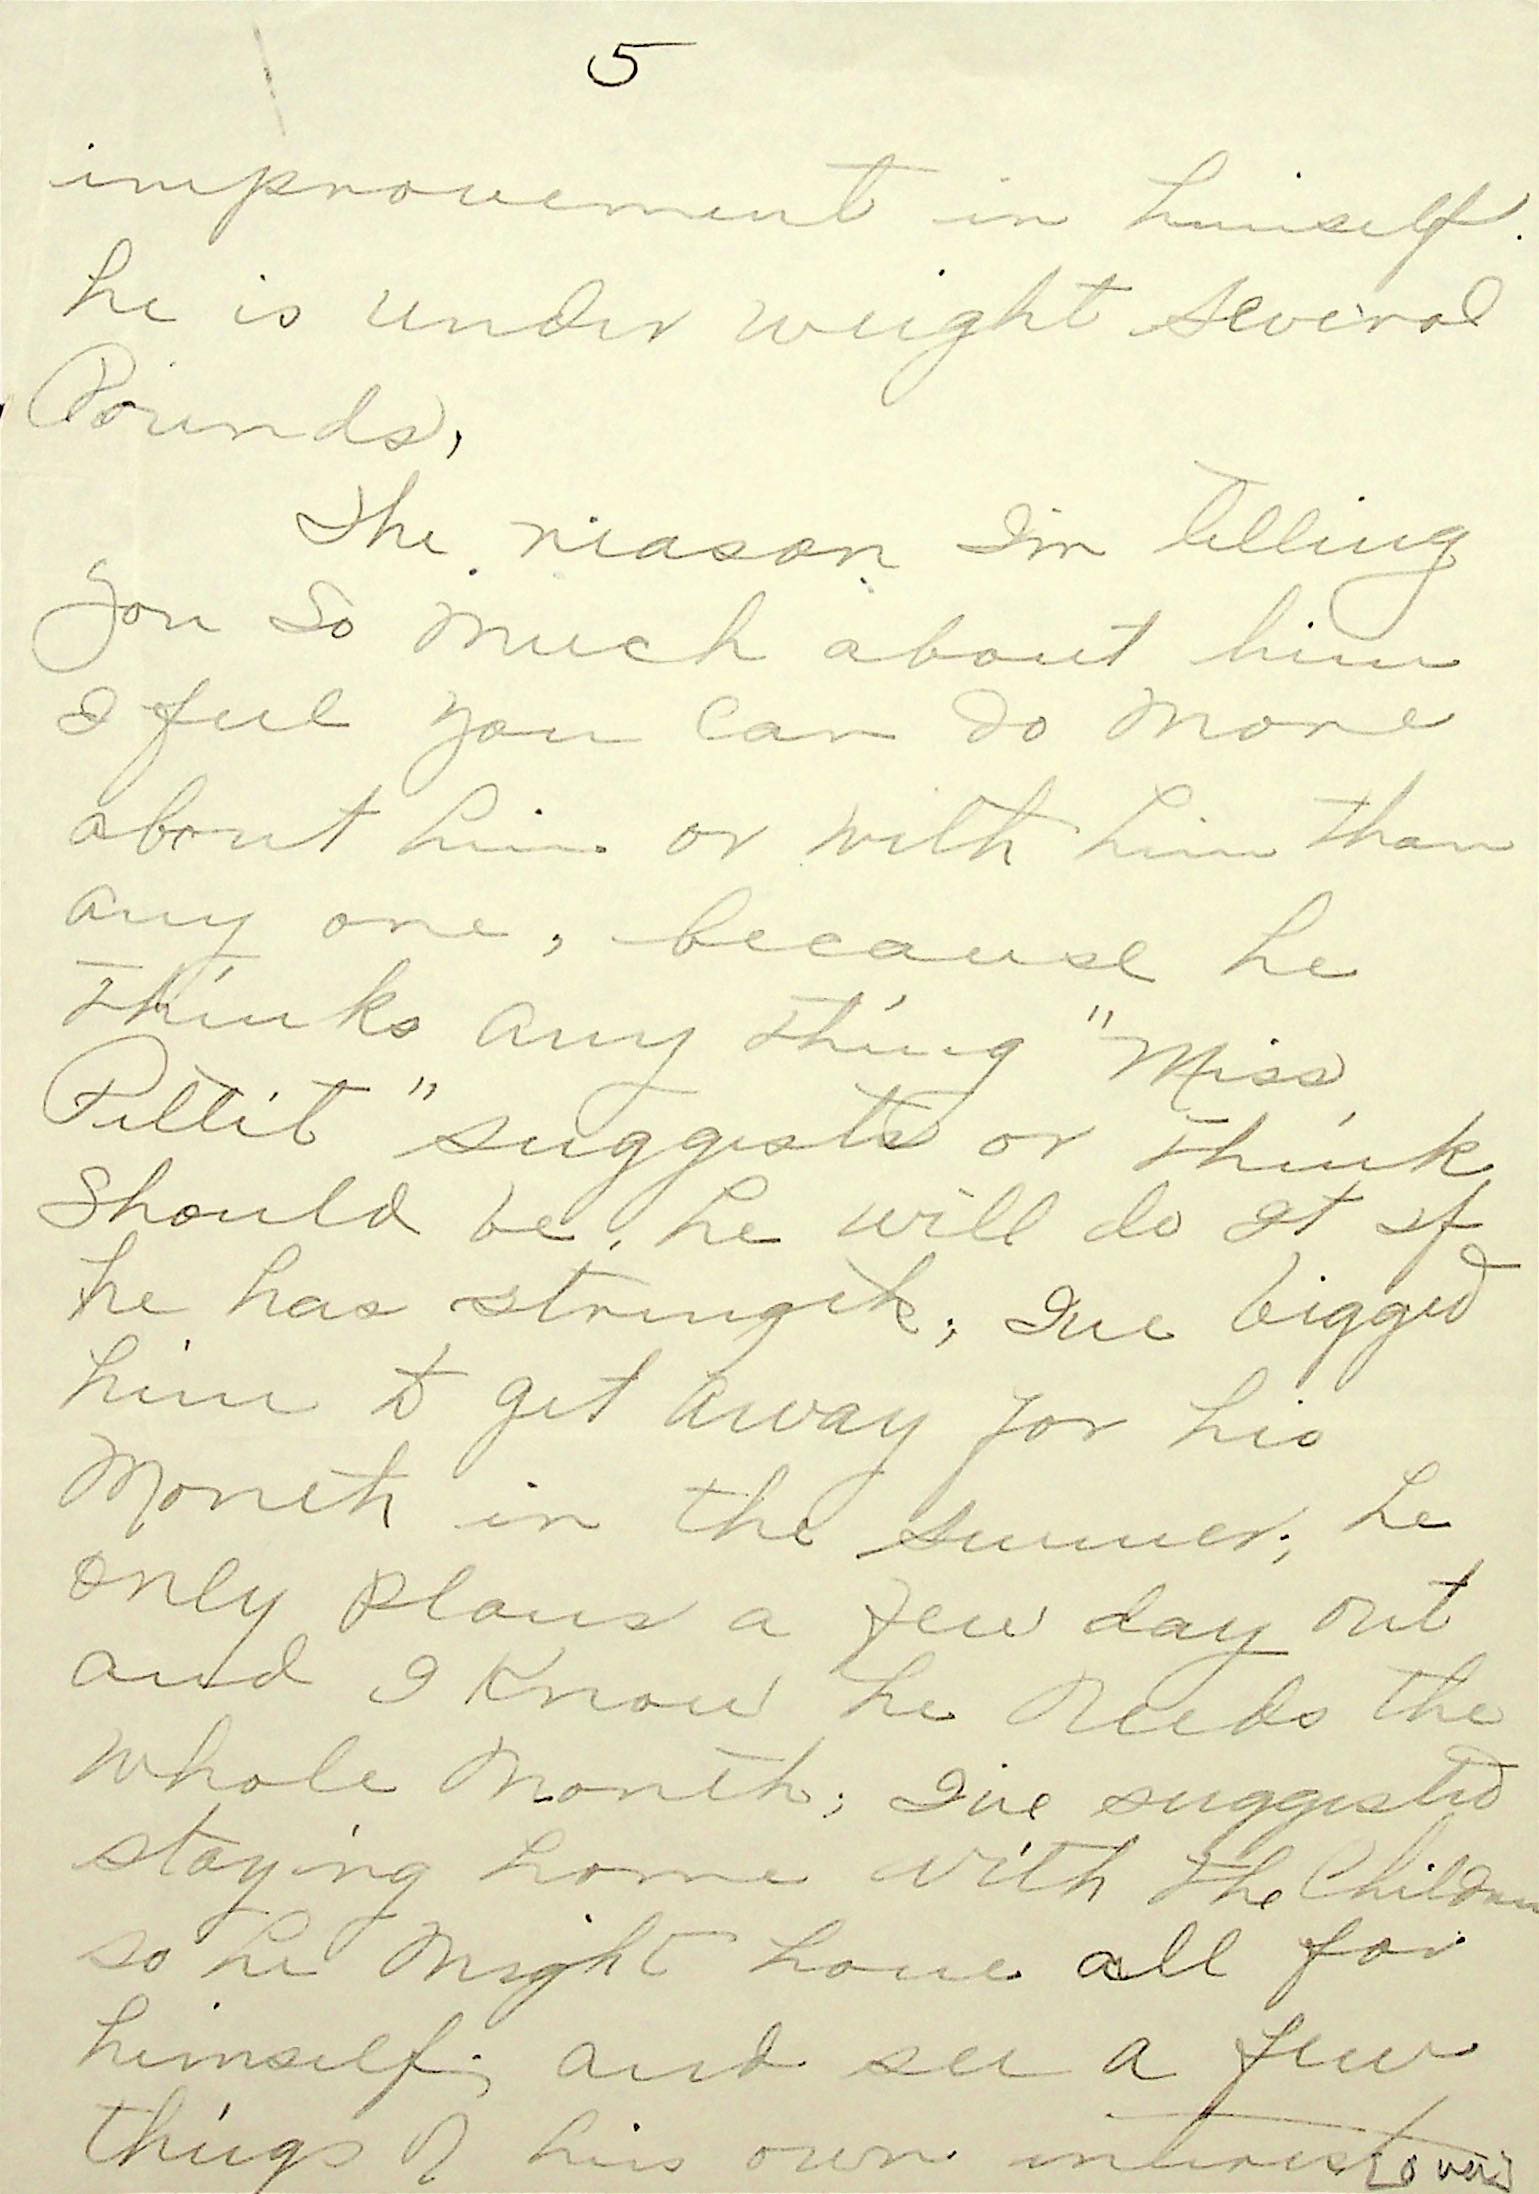 5
improvement in himself.
he is under weight several
Pounds,
The reason I'm telling
you so much about him
I feel you can do more
about him or with him than
any one, because he
thinks any thing "Miss
Pettit" suggests or think
should be, he will do it if
he has strength; I've begged
him to get away for his
Month in the summer; he
only plans a few day out
and I know he needs the
whole month; I've suggested
staying home with the Children
so he might have all for
himself; and see a few
things of his own interest
[over]